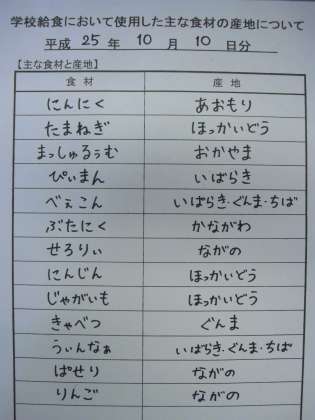 学校給食において使用した主な食材の産地について
平成 25 年 10 月 10 日分
【主な食材と産地】
食材 産地
にんにく あおもり
たまねぎ ほっかいどう
まっしゅるぅむ おかやま
ぴぃまん いばらき
べぇこん いばらき・ぐんま・ちば
ぶたにく かながわ
せろりぃ ながの
にんじん ほっかいどう
じゃがいも ほっかいどう
きゃべつ ぐんま
うぃんなぁ いばらき・ぐんま・ちば
ぱせり ながの
りんご ながの